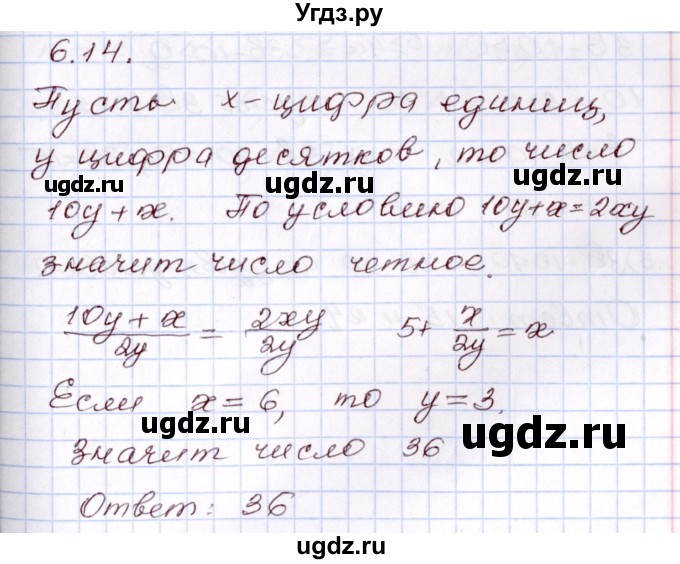 Угдз.ру
6.14.
Пусть x - цифра единиц,
y цифра десятков, то число
ugdz.ru ugdz.ru
10y + x. По условию 10y+x=2xy
значит число четное.
ugdz.ru
10y + x / 2y = 2xy / 2y 5 + x / 2y = x
ugdz.ru
Если x = 6, то y = 3.
ugdz.ru ugdz.ru
Значит число 36
Ответ: 36
ugdz.ru
ugdz.ru